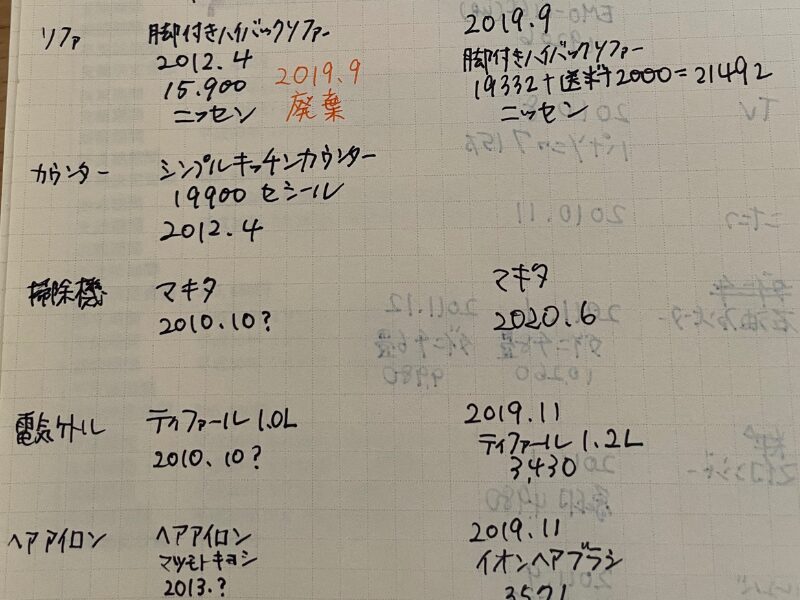 ソファ
脚付きハイバックソファー
2012.4
15.900
ニッセン
2019.9
廃棄
2019.9
脚付きハイバックソファー
19332+送料2000=21492
ニッセン
カウンター
シンプルキッチンカウンター
19900 セシール
2012.4
掃除機
マキタ
2010.10?
マキタ
2020.6
電気ケトル
ティファール 1.0L
2010.10?
2019.11
ティファール 1.2L
3,430
ヘアアイロン
ヘアアイロン
マツモトキヨシ
2013.?
2019.11
イオンヘアブラシ
3571